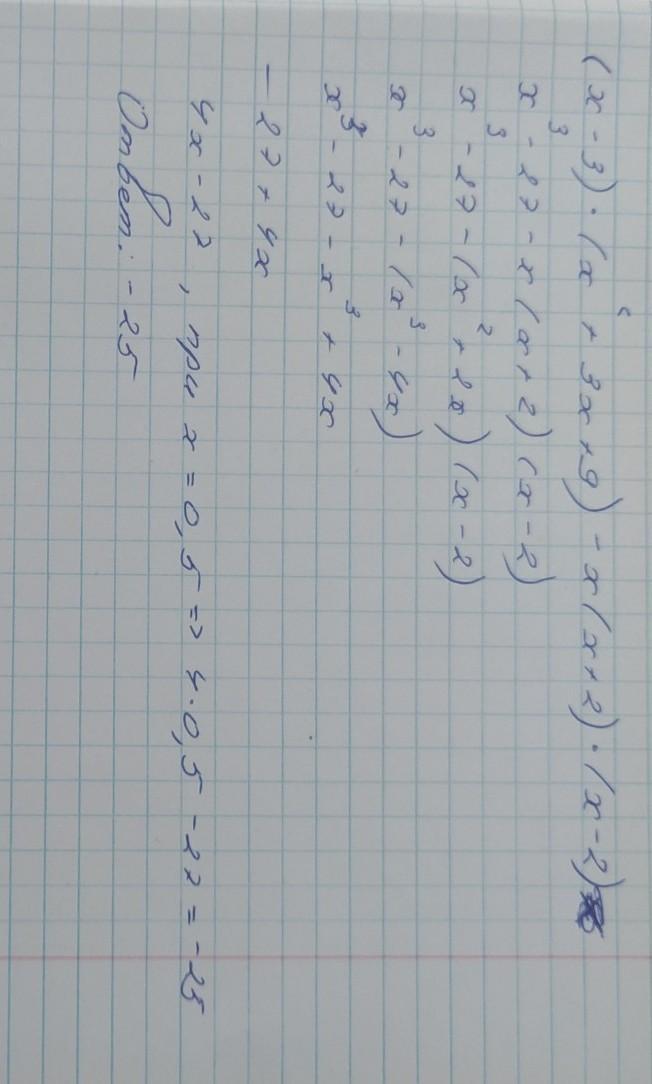 (x-3)·(x²+3x+9)-x(x+2)·(x-2)
x³-27-x(x+2)(x-2)
x³-27-(x²+2x)(x-2)
x³-27-(x³-4x)
x³-27-x³+4x
-27+4x
4x-27, при x=0,5 => 4·0,5-27=-25
Ответ: -25